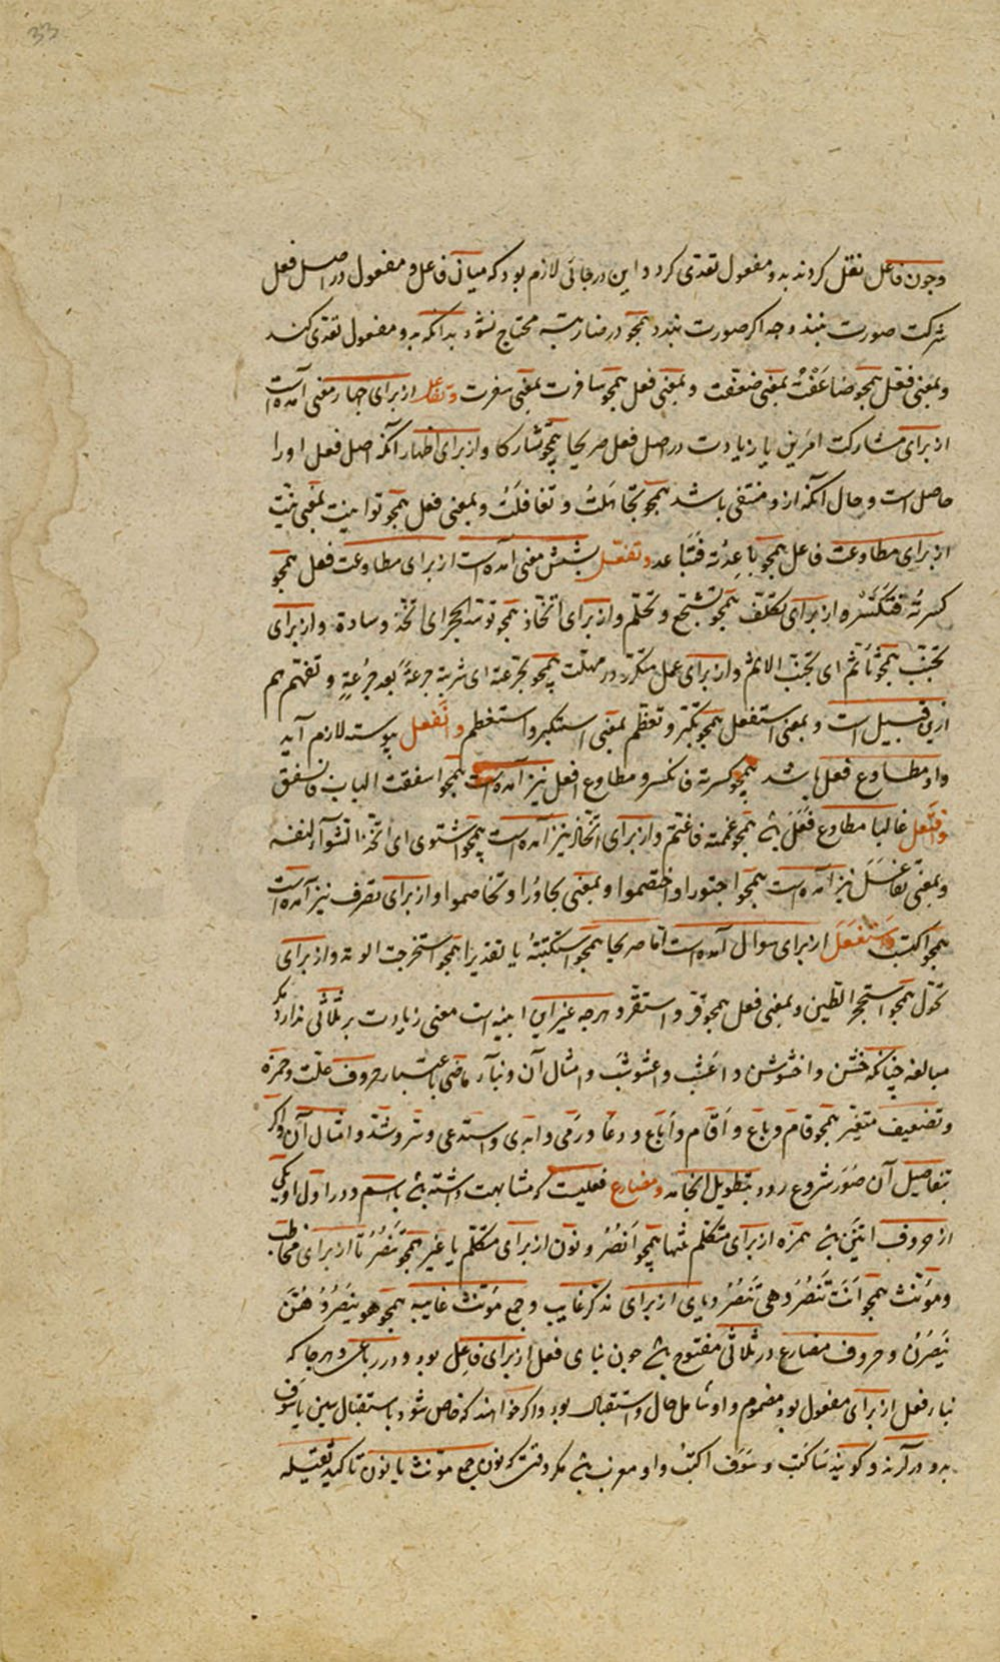 33
وچون فاعل نقل کردند بدو مفعول تعدی کرد و این در جائی لازم بود که میان فاعل و مفعول در اصل فعل
شرکت صورت نبندد چه اگر صورت بندد همچو در ضاربته محتاج نشود بدانکه بدو مفعول تعدی کند
وبمعنی فعّل همچو ضاعَفْتُ بمعنی ضعّفت وبمعنی فعل همچو سافرت بمعنی سفرت وتفاعل از برای چهار معنی آمده است
از برای مشارکت امرین یا زیادت در اصل فعل صریحا همچو تشارکا واز برای اظهار آنکه اصل فعل او را
حاصل است و حال آنکه ازو منتفی باشد همچو تجاهلتُ و تغافلتُ وبمعنی فعل همچو توانیت بمعنی ونیت
از برای مطاوعت فاعل همچو باعدته فتباعد وتفعّل بشش معنی آمده است از برای مطاوعت فعّل همچو
کسرتُه فتکسّر و از برای تکلّف همچو تشجّع و تحلّم و از برای اتّخاذ همچو توسّد الحجر ای اتّخذه وسادة واز برای
تجنّب همچو تأثّم ای تجنّب الاثم واز برای عمل متکرّر در مهلت همچو تجرّعته ای شربته جرعةً بعد جُرعةٍ و تفهّم هم
ازین قبیل است و بمعنی استفعل همچو تکبّر و تعظّم بمعنی استکبر و استعظم وانفعل پیوسته لازم آید
و او مطاوع فعل باشد همچو کسرته فانکسر و مطاوع افعل نیز آمده است همچو اسفقت الباب فانسفق
وافتعل غالبا مطاوع فَعَلَ باشد همچو غممته فاغتمّ واز برای اتّخاذ نیز آمده است همچو اشتوی ای اتّخذ الشواء لنفسه
وبمعنی تفاعَلَ نیز آمده است همچو اجتوروا و اختصموا وبمعنی تجاوروا و تخاصموا واز برای تصرف نیز آمده است
همچو اکتسب واستفعل از برای سوال آمده است اما صریحا همچو استکتبتُه یا تقدیرا همچو استخرجت الوتد واز برای
تحوّل همچو استحجر الطین وبمعنی فعل همچو قرّ و استقرّ و هرچه غیر این ابنیه است معنی زیادت بر ثلاثی ندارد مگر
مبالغه چنانکه خشن و اخشوشن و اعشب و اعشوشب و امثال آن وبناء ماضی باعتبار حروف علّت و همزه
وتضعیف متغیّر همچو قام وباع و اقام و اباع و دعا و رمی و اهدی و استدعی و سرّ و شدّ و امثال آن و اگر
بتفاصیل آن صُوَر شروع رود بتطویل انجامد ومضارع فعلیست که مشابهت داشته باشد باسم و در اول او یکی
از حروف اتین باشد همزه از برای متکلّم تنها همچو اَنصُرُ و نون از برای متکلّم با غیر همچو نَنصُرُ تا از برای مخاطب
ومؤنث همچو اَنتَ تَنصُرُ وهی تَنصُرُ و یای از برای مذکر غایب و جمع مؤنث غایبه همچو هو ینصُرُ وهُنَّ
یَنصُرنَ و حروف مضارع در ثلاثی مفتوح باشد چون بنای فعل از برای فاعل بود و در رباعی و هرجا که
بناء فعل از برای مفعول بود مضموم و او شامل حال و استقبال بود و اگر خواهند که خاص شود باستقبال سین یا سوف
بدو درآرند و گویند ساَکتبُ و سوف اکتبُ و او معرب باشد مگر وقتی که نون جمع مؤنث یا نون تاکید ثقیله